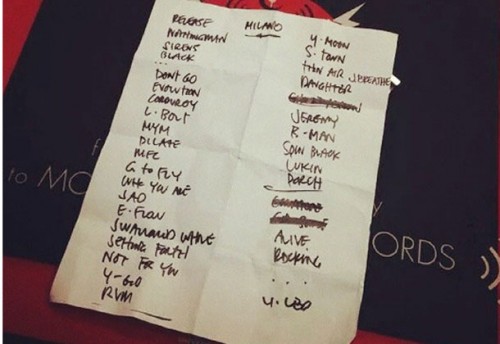 MILANO
RELEASE
NOTHINGMAN
SIRENS
BLACK
...
DON'T GO
EVOLUTION
CORDUROY
L. BOLT
MYM
DILATE
MFC
G TO FLY
WHO YOU ARE
SAD
E-FLOW
SWALLOWED WHOLE
SETTING FORTH
NOT FOR YOU
Y-GOD
RVM
Y-MOON
S-TOWN
THIN AIR J.BREATHE
DAUGHTER
JEREMY
B-MAN
SPIN BLACK
LUKIN
PORCH
ALIVE
ROCKING
...
Y. LED
to MO
ORDS